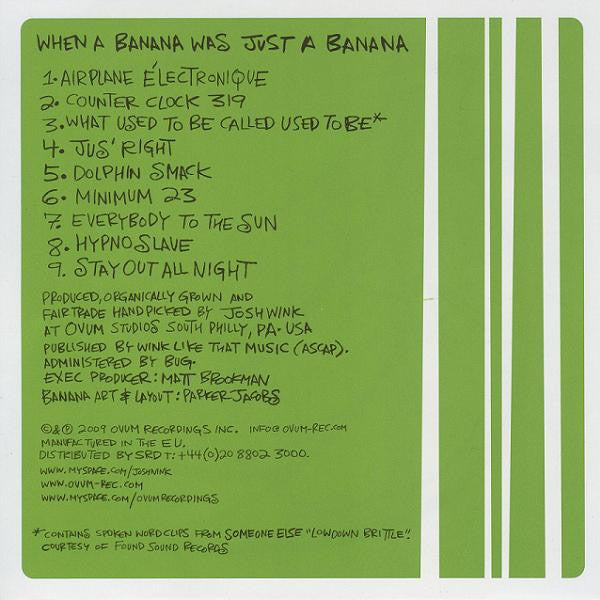 WHEN A BANANA WAS JUST A BANANA
1. AIRPLANE ÉLECTRONIQUE
2. COUNTER CLOCK 319
3. WHAT USED TO BE CALLED USED TO BE*
4. JUS' RIGHT
5. DOLPHIN SMACK
6. MINIMUM 23
7. EVERYBODY TO THE SUN
8. HYPNOSLAVE
9. STAY OUT ALL NIGHT
PRODUCED, ORGANICALLY GROWN AND
FAIR TRADE HAND PICKED BY JOSH WINK
AT OVUM STUDIOS SOUTH PHILLY, PA. USA
PUBLISHED BY WINK LIKE THAT MUSIC (ASCAP).
ADMINISTERED BY BUG.
EXEC PRODUCER: MATT BROOKMAN
BANANA ART & LAYOUT: PARKER JACOBS
©&℗ 2009 OVUM RECORDINGS INC. INFO@OVUM-REC.COM
MANUFACTURED IN THE E.U.
DISTRIBUTED BY SRD T: +44(0)20 8802 3000.
WWW.MYSPACE.COM/JOSHWINK
WWW.OVUM-REC.COM
WWW.MYSPACE.COM/OVUMRECORDINGS
*CONTAINS SPOKEN WORD CLIPS FROM SOMEONE ELSE "LOWDOWN BRITTLE".
COURTESY OF FOUND SOUND RECORDS